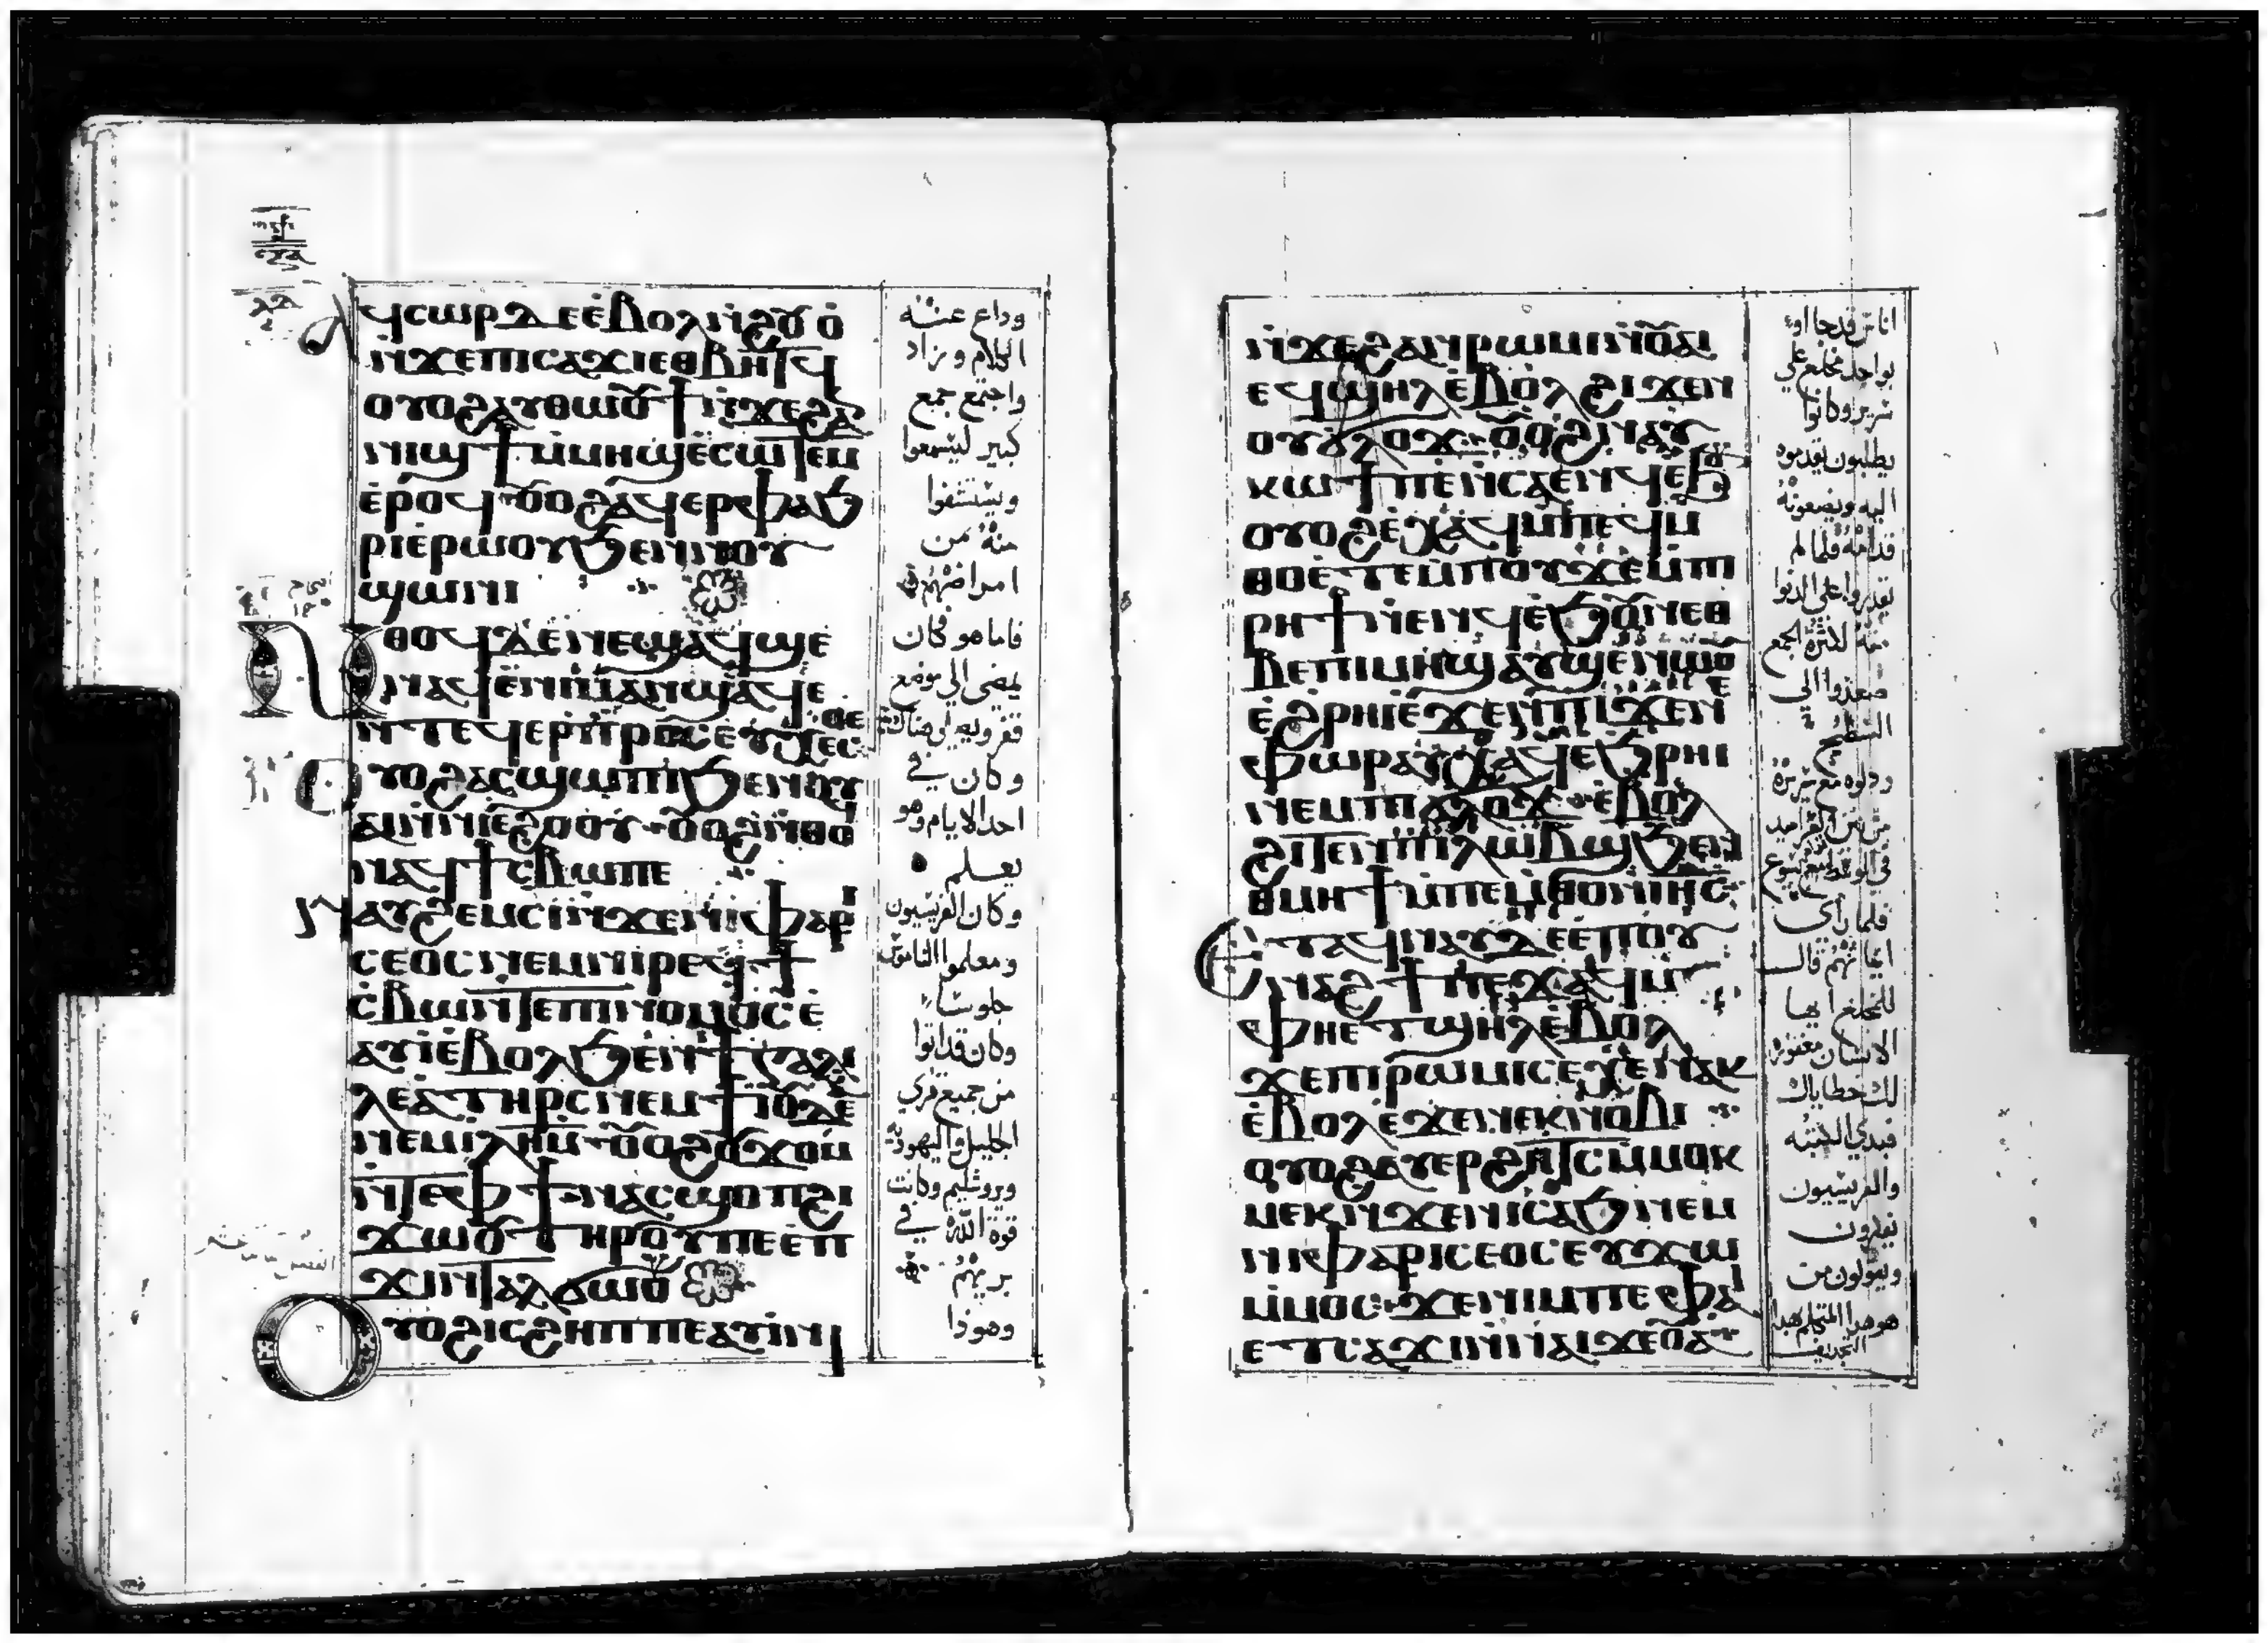 ⲁϥⲥⲱⲣ ⲇⲉ ⲉ̀ⲃⲟⲗ ⲛ̀ϩⲟⲩⲟ̀
ⲛ̀ϫⲉⲡⲓⲥⲁϫⲓ ⲉⲑⲃⲏⲧϥ
ⲟⲩⲟϩ ⲁⲩⲑⲱⲟⲩϯ ⲛ̀ϫⲉϩⲁ
ⲛⲛⲓϣϯ ⲙ̀ⲙⲏϣ ⲉ̀ⲥⲱⲧⲉⲙ
ⲉ̀ⲣⲟϥ ⲟⲩⲟϩ ⲁϥⲉⲣⲫⲁϧ
ⲣⲓ ⲉ̀ⲣⲱⲟⲩ ϧⲉⲛⲛⲟⲩ
ϣⲱⲛⲓ
ⲛⲑⲟϥ ⲇⲉ ⲛⲉϣⲁϥϣⲉ
ⲛⲁϥ ⲉ̀ⲛⲓⲙⲁⲛϣⲁϥⲉ
ⲛ̀ⲧⲉϥⲉⲣⲡ̀ⲣⲟⲥⲉⲩⲭⲉⲥⲑⲉ
ⲟⲩⲟϩ ⲁⲥϣⲱⲡⲓ ϧⲉⲛⲟⲩ
ⲁⲓ ⲛ̀ⲛⲓⲉ̀ϩⲟⲟⲩ ⲟⲩⲟϩ ⲛ̀ⲑⲟϥ
ⲛⲁϥϯⲥⲃⲱⲡⲉ
ⲛⲁⲩϩⲉⲙⲥⲓ ⲛ̀ϫⲉⲛⲓⲫⲁⲣⲓ
ⲥⲉⲟⲥ ⲛⲉⲙⲛⲓⲣⲉϥϯ
ⲥ̀ⲃⲱ ⲛ̀ⲧⲉⲡⲓⲛⲟⲙⲟⲥ ⲉ̀
ⲁⲩⲓ̀ ⲉ̀ⲃⲟⲗ ϧⲉⲛϯⲅⲁⲗⲓ
ⲗⲉⲁ ⲧⲏⲣⲥ ⲛⲉⲙϯⲓⲟⲩⲇⲉⲁ
ⲛⲉⲙⲓⲗⲏⲙ ⲟⲩⲟϩ ⲟⲩϫⲟⲙ
ⲛ̀ⲧⲉⲫϯ ⲛⲁⲥϣⲟⲡ ϩⲓ
ϫⲱⲟⲩ ⲧⲏⲣⲟⲩⲡⲉ ⲉ̀ⲡ
ϫⲓⲛⲧⲁⲗϭⲱⲟⲩ
ⲟⲩⲟϩ ⲓⲥϩⲏⲡⲡⲉ ⲁⲩⲓ̀ⲛⲓ
وذاع عنه
الكلام وزاد
واجتمع جمع
كبير ليسمعوا
ويستشفوا
منه من
امراضهم
فاما هو فكان
يمضي الي موضع
قفر ويصلي هناك
وكان في
احد الايام وهو
يعلم
وكان الفريسيون
ومعلموا الناموس
جلوسا
وكان قد اتوا
من جميع قري
الجليل واليهودية
ويروشليم وكانت
قوة الله في
بريهم
وهوذا
ⲛ̀ϫⲉϩⲁⲛⲣⲱⲙⲓ ⲛ̀ⲟⲩⲁⲓ
ⲉϥϣⲏⲗ ⲉ̀ⲃⲟⲗ ϩⲓϫⲉⲛ
ⲟⲩϭⲗⲟϫ ⲟⲩⲟϩ ⲛⲁⲩ
ⲕⲱϯⲡⲉ ⲛ̀ⲥⲁⲉⲛϥ ⲉ̀ϧⲟⲩⲛ
ⲟⲩⲟϩ ⲉ̀ⲭⲁϥ ⲙ̀ⲡⲉϥⲙ̀
ⲑⲟ ⲉⲧⲉⲙ̀ⲡⲟⲩϫⲉⲙ̀ⲡ
ⲣⲏϯ ⲛ̀ⲉⲛϥ ⲉ̀ϧⲟⲩⲛ ⲉⲑ
ⲃⲉⲡⲓⲙⲏϣ ⲁⲩϣⲉⲛⲱⲟⲩ
ⲉ̀ϩⲣⲏⲓ ⲉ̀ϫⲉⲛⲡⲓϫⲉⲛⲉ
ⲫⲱⲣ ⲁⲩⲭⲁϥ ⲉ̀ϧⲣⲏⲓ
ⲛⲉⲙⲡⲓϭⲗⲟϫ ⲉ̀ⲃⲟⲗ
ϩⲓⲧⲉⲛⲛⲓⲗⲱⲃϣ ϧⲉⲛ
ⲑⲙⲏϯ ⲙ̀ⲡⲉⲙ̀ⲑⲟⲛⲓⲏⲥ
ⲉⲧⲁϥⲛⲁⲩ ⲇⲉ ⲉ̀ⲡⲟⲩ
ⲛⲁϩϯ ⲡⲉϫⲁϥ ⲙ̀
ⲫⲏⲉⲧϣⲏⲗ ⲉ̀ⲃⲟⲗ
ϫⲉⲡⲓⲣⲱⲙⲓ ⲥⲉⲭⲉⲛⲁⲕ
ⲉ̀ⲃⲟⲗ ⲉ̀ϫⲉⲛⲉⲕⲛⲟⲃⲓ
ⲟⲩⲟϩ ⲁⲩⲉⲣϩⲏⲧⲥ ⲙ̀ⲙⲟⲕ
ⲙⲉⲕ ⲛ̀ϫⲉⲛⲓⲥⲁϧ ⲛⲉⲙ
ⲛⲓⲫⲁⲣⲓⲥⲉⲟⲥ ⲉⲩϫⲱ
ⲙ̀ⲙⲟⲥ ϫⲉⲛⲓⲙⲡⲉ ⲫⲁⲓ
ⲉⲧⲥⲁϫⲓ ⲛ̀ⲛⲁⲓϫⲉⲟⲩⲁ
اناس قد جاوا
بواحد مخلع علي
سرير وكانوا
يطلبون يقدموه
اليه ويضعونه
قدامه فلما لم
يقدروا علي الدنوا
منه لكثرة الجمع
صعدوا الي
السطح
ودلوه مع سريره
فلما راي
ايمانهم قال
للمخلع ايها
الانسان مغفورة
لك خطاياك
فبدي الكتبه
والفريسيون
يفكرون
ويقولون من
هو هذا المتكلم بهذا
التجديف